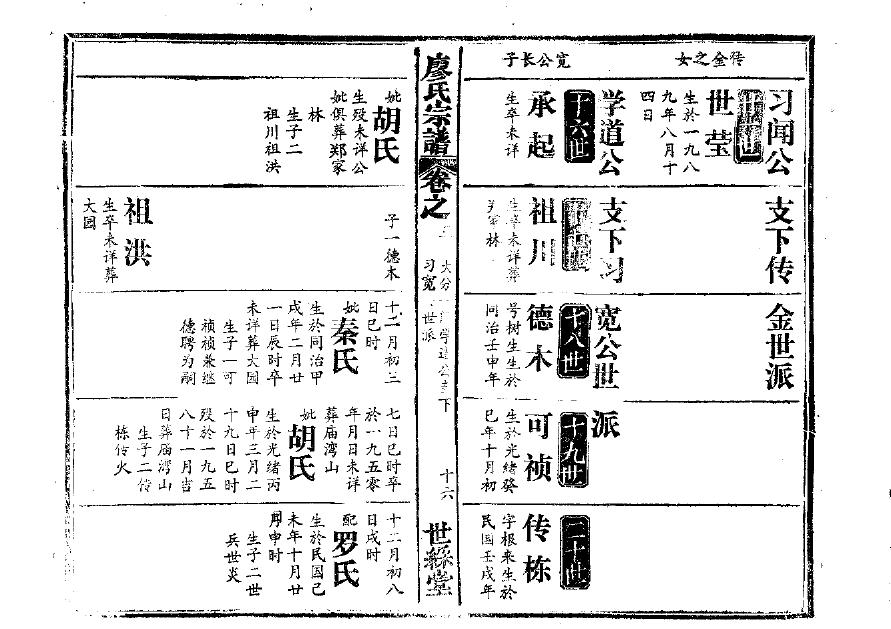 传金之女
习闻公支下传金世派
世莹
生於一九八
九年八月十
四日
宽公长子
学道公支下习宽公世派
十六世
承起
生卒未详
祖川
生卒未详葬
林
十八世
德木
号树生生於
同治壬申年
十九世
可祯
生於光绪癸
巳年十月初
二十世
传栋
字根来生於
民国壬戌年
廖氏宗谱
卷之
习宽
世派
学道公支下
十六
世綵堂
妣胡氏
生殁未详公
妣俱葬郑家
林
生子二
祖川祖洪
子一德木
祖洪
生卒未详葬
大园
十二月初三
日巳时
妣秦氏
生於同治甲
戌年二月廿
一日辰时卒
未详葬大园
生子一可
祯祯兼继
德聘为嗣
七日巳时卒
於一九五零
年月日未详
葬庙湾山
妣胡氏
生於光绪丙
申年三月二
十九日巳时
殁於一九五
八十一月吉
日葬庙湾山
生子二传
栋传火
十二月初八
日戌时
配罗氏
生於民国己
未年十月廿
申时
生子二世
兵世炎